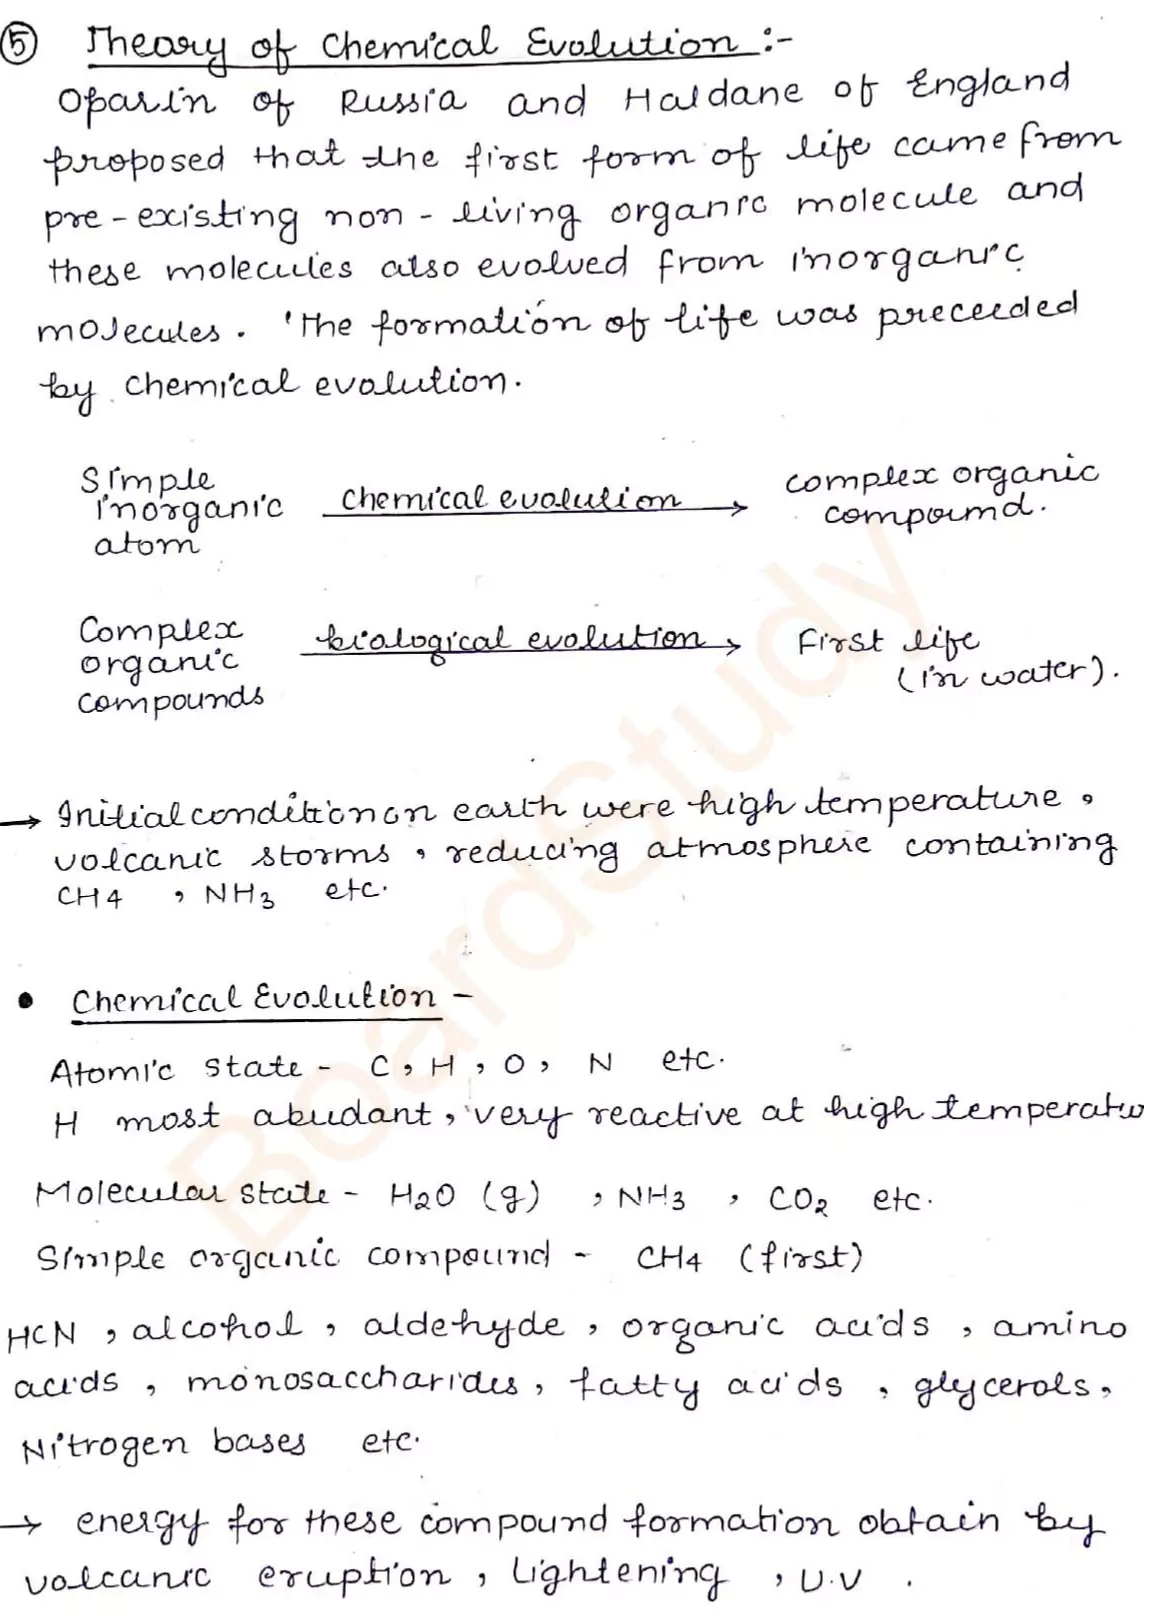 ⑤ Theory of Chemical Evolution :-
Oparin of Russia and Haldane of England
proposed that the first form of life came from
pre-existing non-living organic molecule and
these molecules also evolved from inorganic
molecules. 'The formation of life was preceeded
by chemical evolution.
Simple
inorganic
atom
chemical evolution
complex organic
compound.
Complex
organic
compounds
biological evolution
First life
(in water).
→ Initial condition on earth were high temperature,
volcanic storms, reducing atmosphere containing
CH4, NH3 etc.
• Chemical Evolution -
Atomic state - C, H, O, N etc.
H most abudant, very reactive at high temperatu
Molecular state - H2O (g), NH3, CO2 etc.
Simple organic compound - CH4 (first)
HCN, alcohol, aldehyde, organic acids, amino
acids, monosaccharides, fatty acids, glycerols,
Nitrogen bases etc.
→ energy for these compound formation obtain by
volcanic eruption, lightening, U.V.
BoardStudy